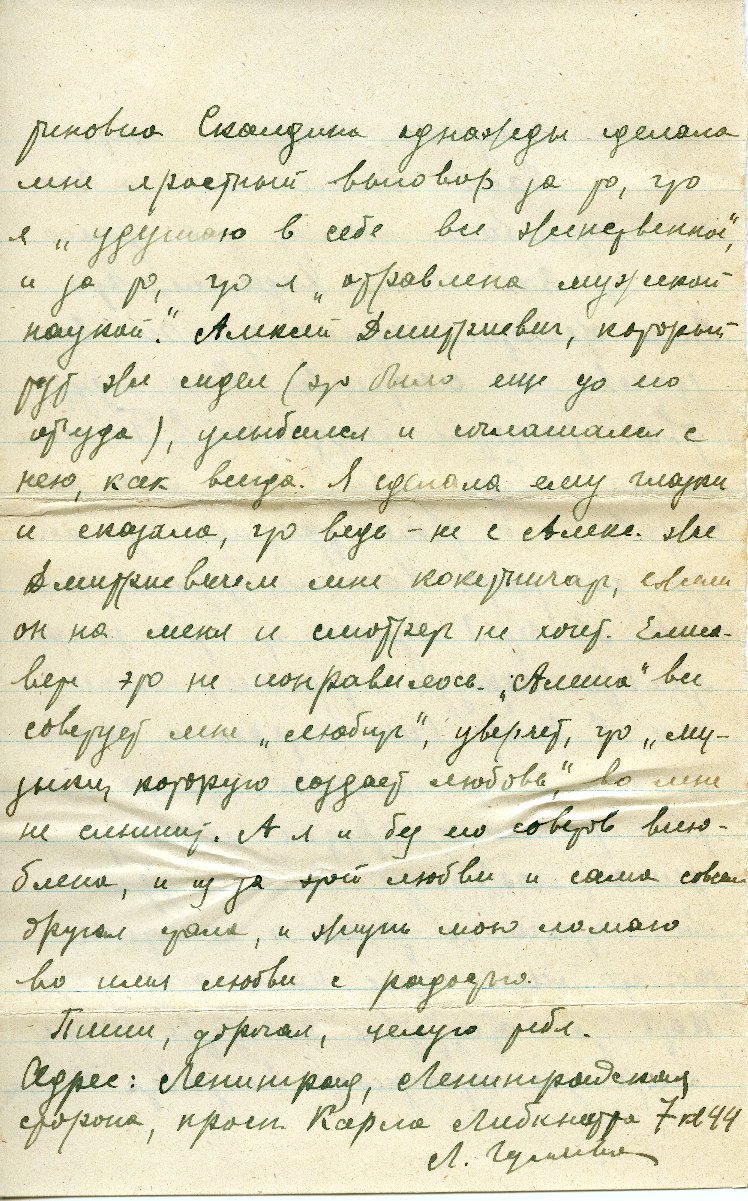 тиновна Скалдина однажды сделала
мне яростный выговор за то, что
я „удушаю в себе все женственное",
и за то, что я „отравлена мужской
наукой". Алексей Дмитриевич, который
тут же сидел (это было еще до его
отъезда), улыбался и соглашался с
нею, как всегда. Я сделала ему глазки
и сказала, что ведь – не с Алекс. же
Дмитриевичем мне кокетничать, если
он на меня и смотреть не хочет. Елиса-
вете это не понравилось. „Алеша" все
советует мне „любить", уверяет, что „му-
зыки, которую создает любовь", во мне
не слышит. А я и без его советов влю-
блена, и из за этой любви и сама совсем
другая стала, и жизнь мою ломаю
во имя любви с радостью.
Пиши, дорогая, целую тебя.
Адрес: Ленинград, Ленинградская
сторона, просп. Карла Либкнехта 7 кв 44
Л.